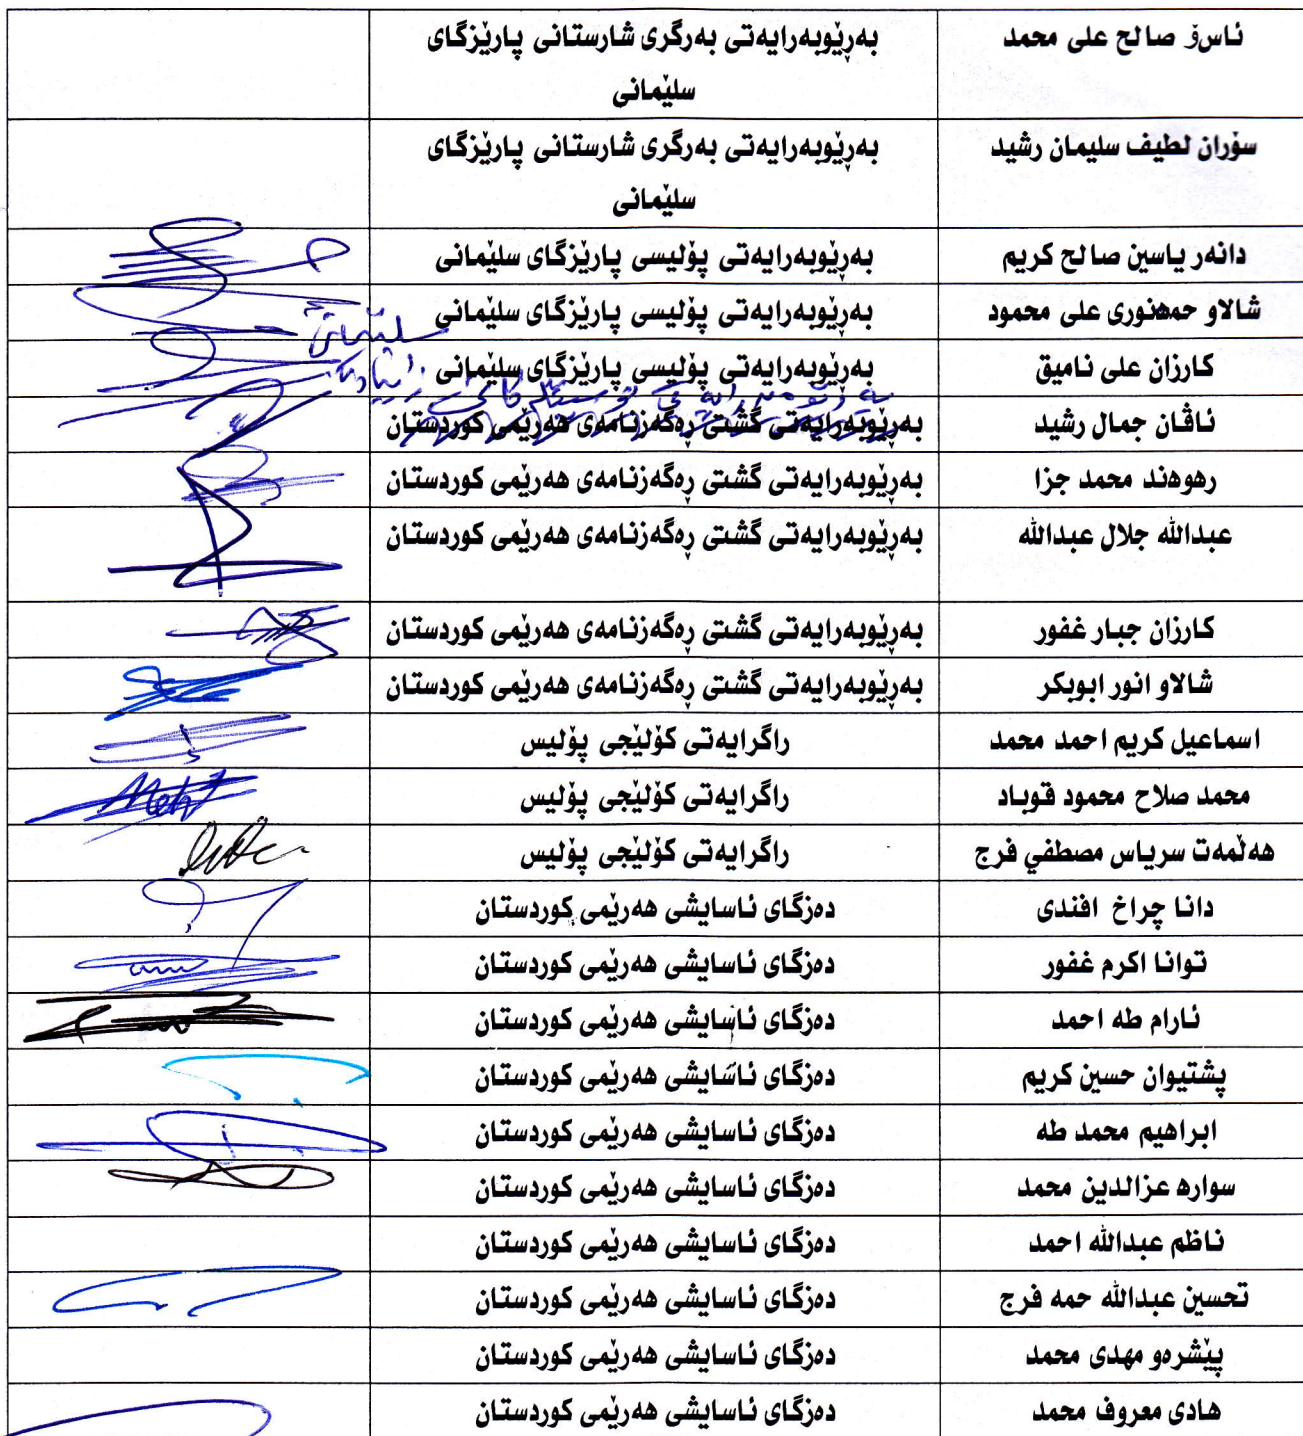 ئاسۆ صالح علی محمد بەڕێوبەرایەتی بەرگری شارستانی پارێزگای
سلێمانی
سۆران لطیف سلیمان رشید بەڕێوبەرایەتی بەرگری شارستانی پارێزگای
سلێمانی
دانەر یاسین صالح کریم بەڕێوبەرایەتی پۆلیسی پارێزگای سلێمانی
شالاو حمەنوری علی محمود بەڕێوبەرایەتی پۆلیسی پارێزگای سلێمانی
سلێمانی
کارزان علی نامیق بەڕێوبەرایەتی پۆلیسی پارێزگای سلێمانی
ئاڤان جمال رشید بەڕێوبەرایەتی گشتی ڕەگەزنامەی هەرێمی کوردستان
رهوهند محمد جزا بەڕێوبەرایەتی گشتی ڕەگەزنامەی هەرێمی کوردستان
عبدالله جلال عبدالله بەڕێوبەرایەتی گشتی ڕەگەزنامەی هەرێمی کوردستان
کارزان جبار غفور بەڕێوبەرایەتی گشتی ڕەگەزنامەی هەرێمی کوردستان
شالاو انور ابوبکر بەڕێوبەرایەتی گشتی ڕەگەزنامەی هەرێمی کوردستان
اسماعیل کریم احمد محمد راگرایەتی کۆلێجی پۆلیس
محمد صلاح محمود قوباد راگرایەتی کۆلێجی پۆلیس
هەڵمەت سریاس مصطفي فرج راگرایەتی کۆلێجی پۆلیس
دانا چراخ افندی دەزگای ئاسایشی هەرێمی کوردستان
توانا اکرم غفور دەزگای ئاسایشی هەرێمی کوردستان
ئارام طه احمد دەزگای ئاسایشی هەرێمی کوردستان
پشتیوان حسین کریم دەزگای ئاسایشی هەرێمی کوردستان
ابراهیم محمد طه دەزگای ئاسایشی هەرێمی کوردستان
سواره عزالدین محمد دەزگای ئاسایشی هەرێمی کوردستان
ناظم عبدالله احمد دەزگای ئاسایشی هەرێمی کوردستان
تحسین عبدالله حمه فرج دەزگای ئاسایشی هەرێمی کوردستان
پێشرەو مهدی محمد دەزگای ئاسایشی هەرێمی کوردستان
هادی معروف محمد دەزگای ئاسایشی هەرێمی کوردستان